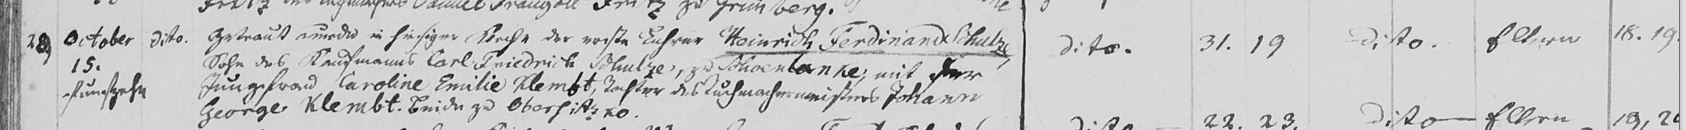 Fritz zu Grünberg.
28, October dito. Getraut wurde in hiesiger Kirche der erste Lehrer Heinrich Ferdinand Schulze, dito. 31. 19 dito. Eltern 18. 19.
15. Sohn des Kaufmanns Carl Friedrich Schulze, zu Schoenlanke, mit der
funfzehn Jungefrau Caroline Emilie Klembt, Tochter des Tuchmachermeisters Johann
George Klembt. Beide zu Obersitzko.
dito 22. 23. dito Eltern 19, 20